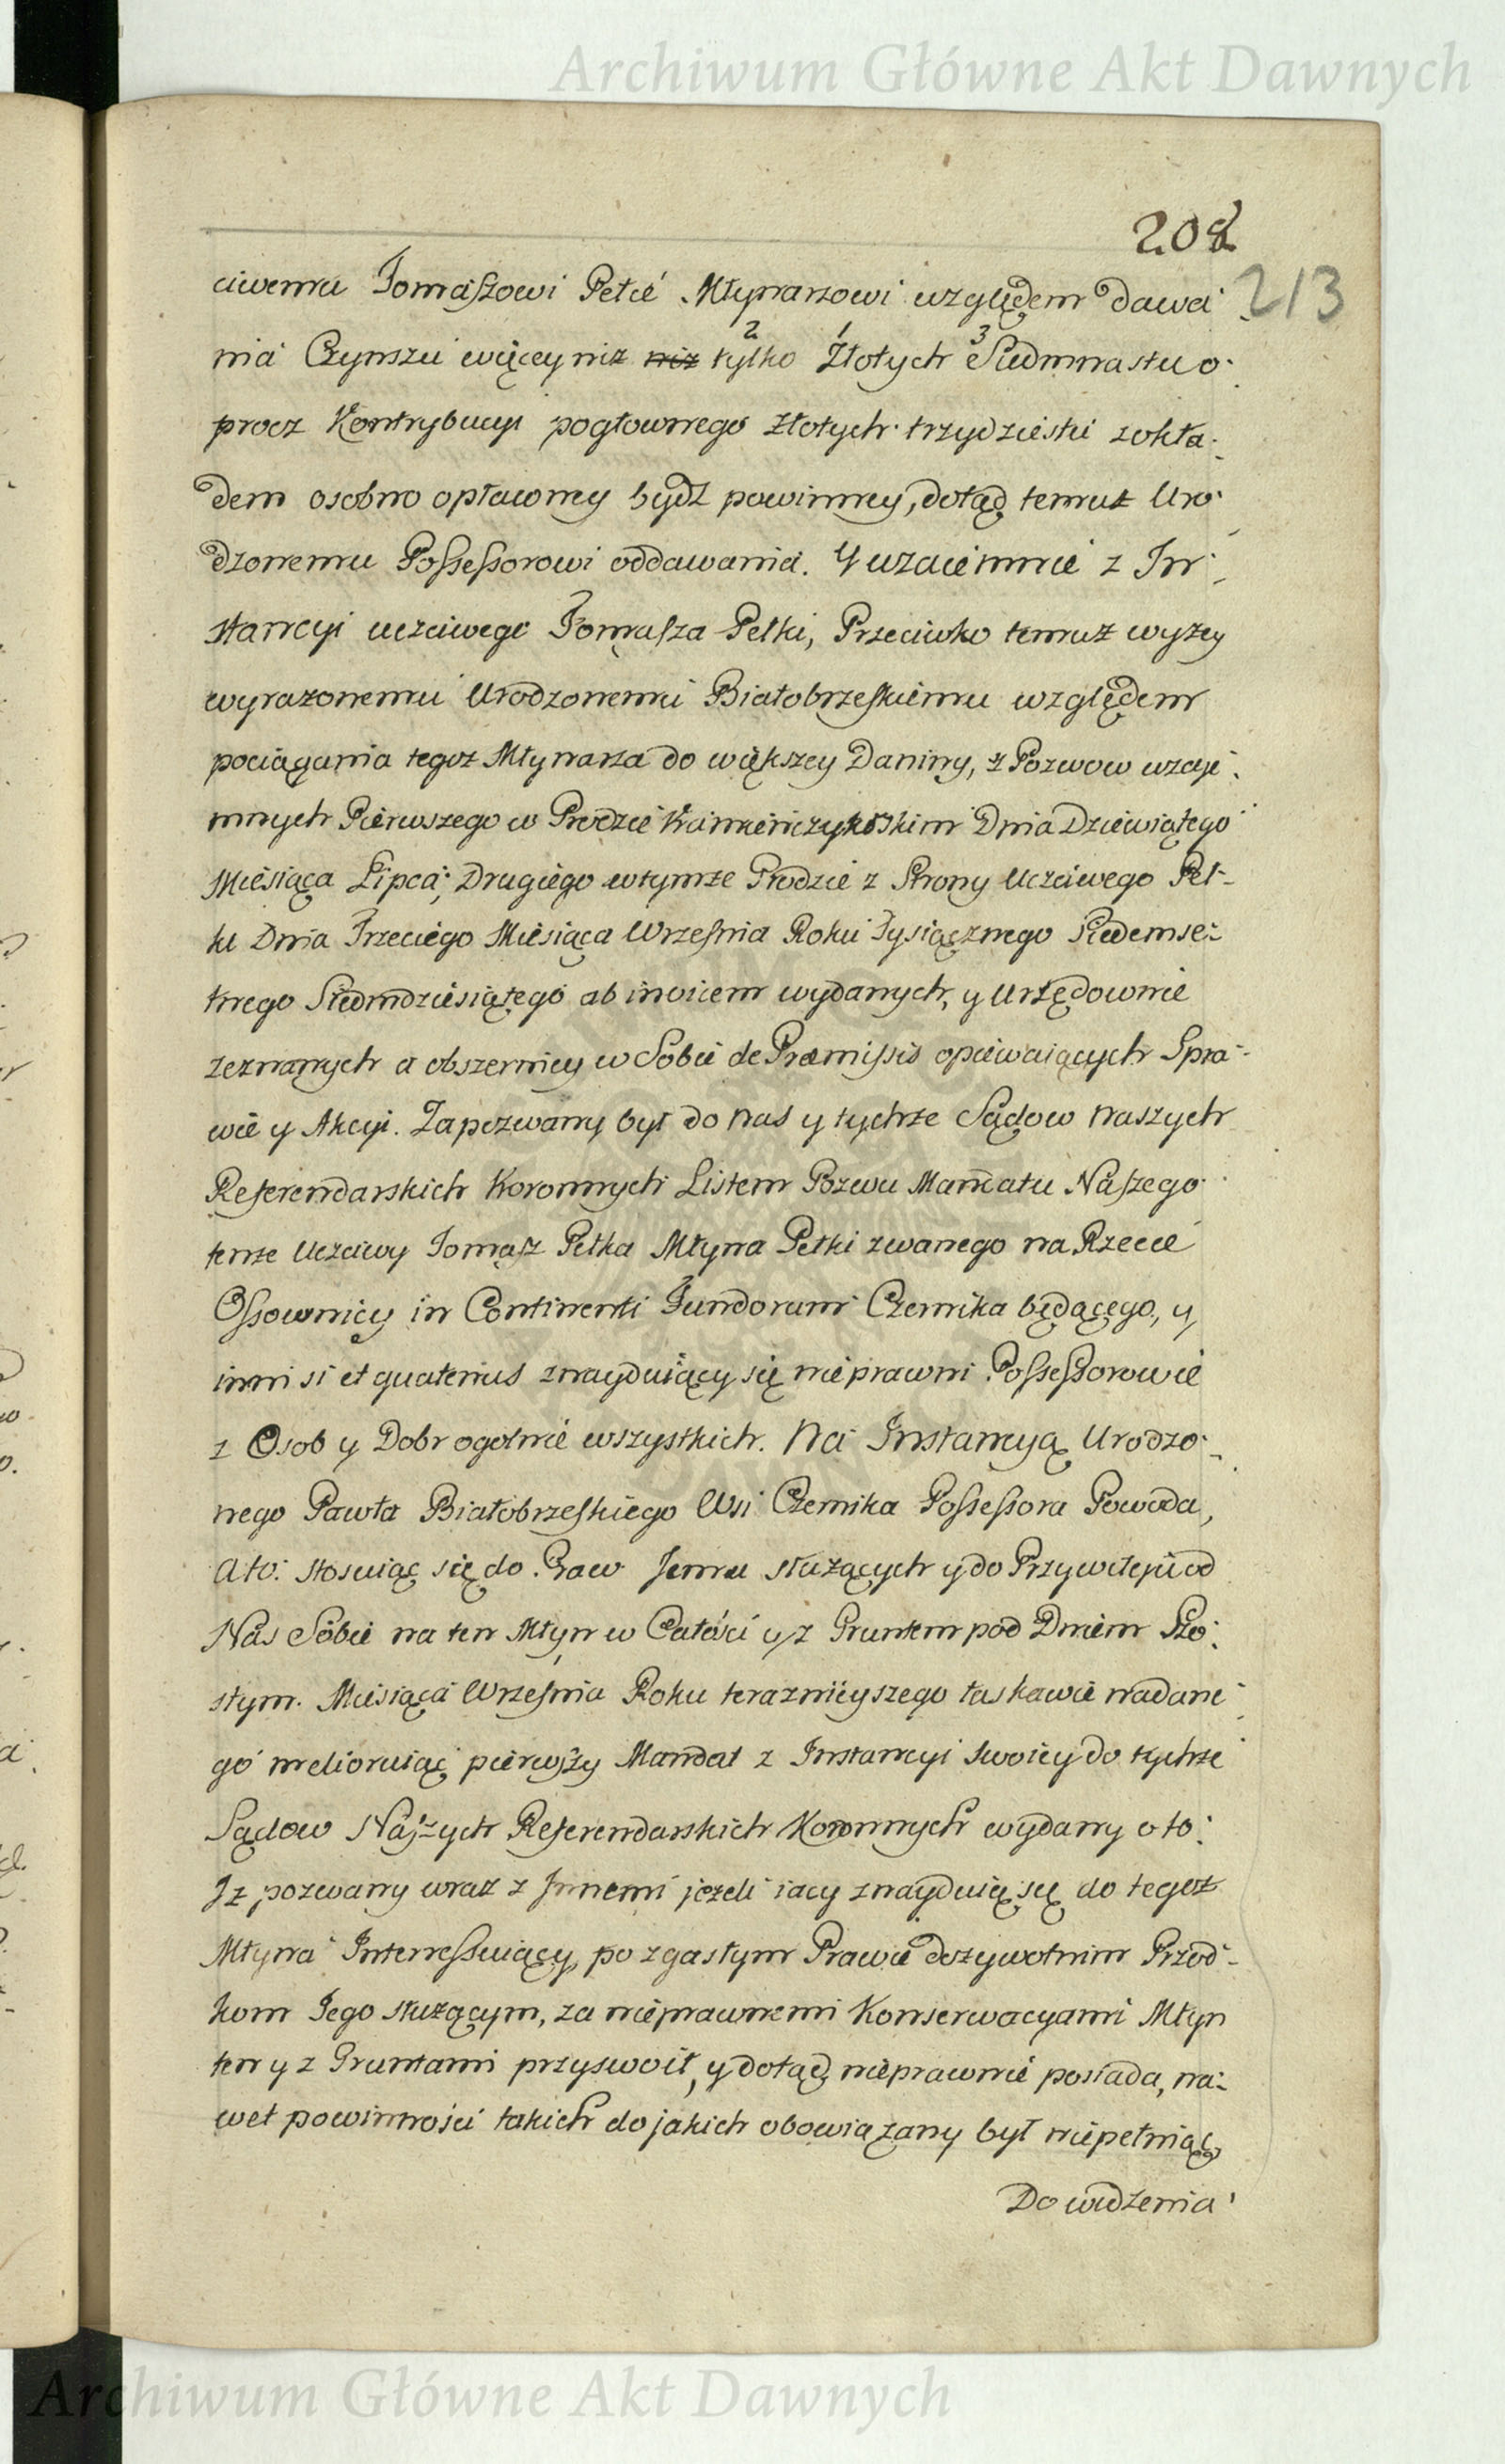 Archiwum Główne Akt Dawnych
208
213
ciwemu Tomaszowi Pełce Młynarzowi względem dawa-
nia Czynszu więcey niż niż tylko Złotych Siedmnastu o-
2 1 3
procz Kontrybucyi pogłownego złotych trzydziestu zokła-
dem osobno opłacomey bydź powinney, dotąd temuż Uro-
dzonemu Possessorowi oddawania. Y wzaiemnie z In-
stancyi uczciwego Tomasza Pełki, Przeciwko temuż wyżey
wyrażonemu Urodzonemu Białobrzeskiemu względem
pociągania tegoż Młynarza do większey Daniny, z Pozwow wzaie-
mnych Pierwszego w Grodzie Kamieńczykoskim Dnia Dziewiątego
Miesiąca Lipca, Drugiego wtymże Grodzie z Strony Uczciwego Peł-
ki Dnia Trzeciego Miesiąca Września Roku Tysiącznego Siedemse-
tnego Siedmdziesiątego ab invicem wydanych, y Urzędownie
zeznanych a obszerniey w Sobie de Præmissis opiewaiących Spra-
wie y Akcyi. Zapozwany był do Nas y tychże Sądow Naszych
Referendarskich Koronnych Listem Pozwu Mandatu Naszego
tenże Uczciwy Tomasz Pełka Młyna Pełki zwanego na Rzece
Ossownicy in Continenti Fundorum Czernika będącego, y
inni si et quatenus znayduiący się nieprawni Possessorowie
z Osob y Dobr ogolnie wszystkich. Na Instancyą Urodzo-
nego Pawła Białobrzeskiego Wsi Czernika Possessora Powoda,
a to: stosuiąc się do Praw Jemu służących y do Przywileju od
Nas Sobie na ten Młyn w Całości y z Gruntem pod Dniem Szo-
stym. Miesiąca Września Roku teraznieyszego łaskawie nadane-
go melioruiąc pierwszy Mandat z Instancyi Swoiey do tychże
Sądow Naszych Referendarskich Koronnych wydany o to:
Iż pozwany wraz z Innemi jeżeli iacy znayduią się do tegoż
Młyna Interressuiący, po zgasłym Prawie dożywotnim Przod-
kom Jego służącym, za nieprawnemi Konserwacyami Młyn
ten y z Gruntami przyswoił, y dotąd nieprawnie posiada, na-
wet powinności takich do jakich obowiązany był niepełniąc
Do widzenia
Archiwum Główne Akt Dawnych